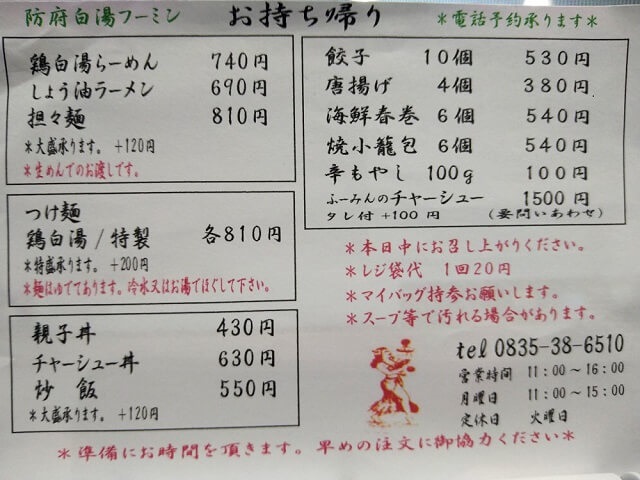 防府白湯フーミン お持ち帰り *電話予約承ります*
鶏白湯らーめん 740円
しょう油ラーメン 690円
担々麺 810円
*大盛承ります。 +120円
*生めんでのお渡しです。
つけ麺
鶏白湯/特製 各810円
*特盛承ります。 +200円
*麺はゆでてあります。冷水又はお湯でほぐして下さい。
親子丼 430円
チャーシュー丼 630円
炒飯 550円
*大盛承ります。 +120円
餃子 10個 530円
唐揚げ 4個 380円
海鮮春巻 6個 540円
焼小龍包 6個 540円
辛もやし 100g 100円
ふーみんのチャーシュー 1500円
タレ付 +100円 (要問いあわせ)
*本日中にお召し上がりください。
*レジ袋代 1回20円
*マイバッグ持参お願いします。
*スープ等で汚れる場合があります。
tel 0835-38-6510
営業時間 11:00~16:00
月曜日 11:00~15:00
定休日 火曜日
*準備にお時間を頂きます。早めの注文に御協力ください*